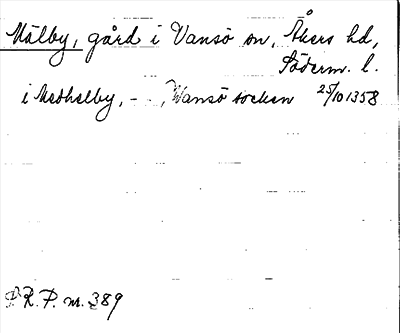 Mälby, gård i Vansö sn, Åkers hd,
Söderm. l.
i Medhelby, - - , Wansö socken 25/10 1358
P. R. P. nr. 389